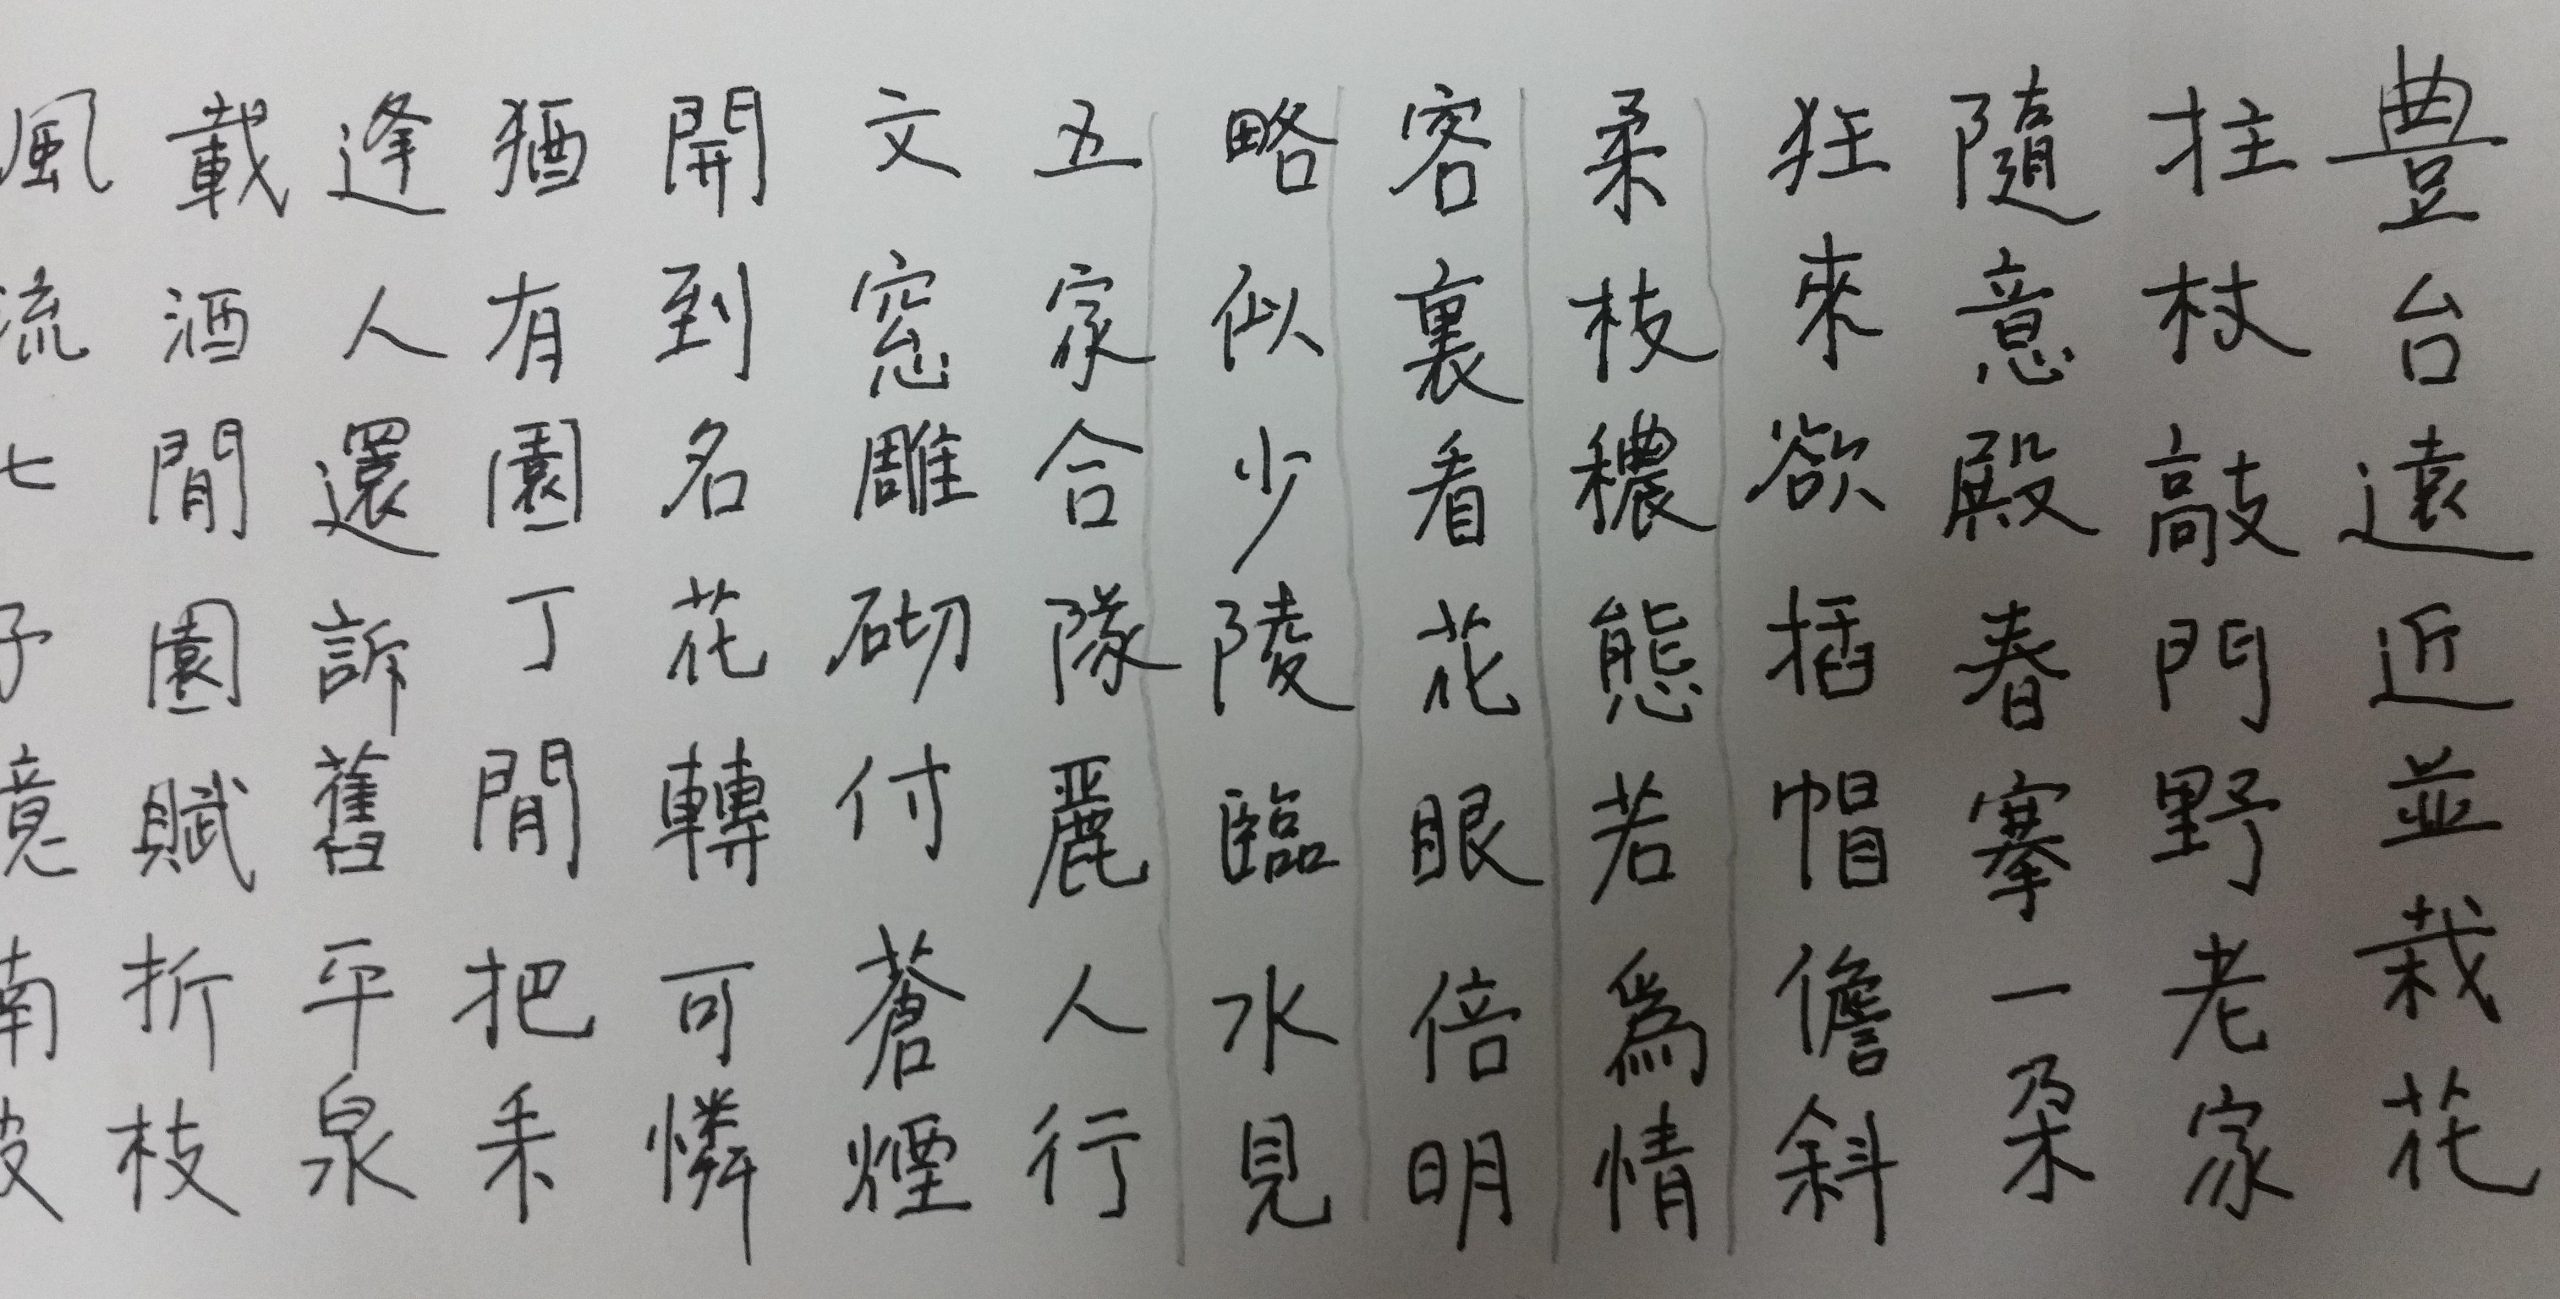 豊台遠近並栽花
拄杖敲門野老家
隨意殿春搴一朶
狂來欲插帽儋斜
柔枝穠態若爲情
客裏看花眼倍明
略似少陵臨水見
五家合隊麗人行
文窓雕砌付蒼煙
開到名花轉可憐
猶有園丁閒把耒
逢人還訴舊平泉
載酒閒園賦折枝
風流七子憶南皮